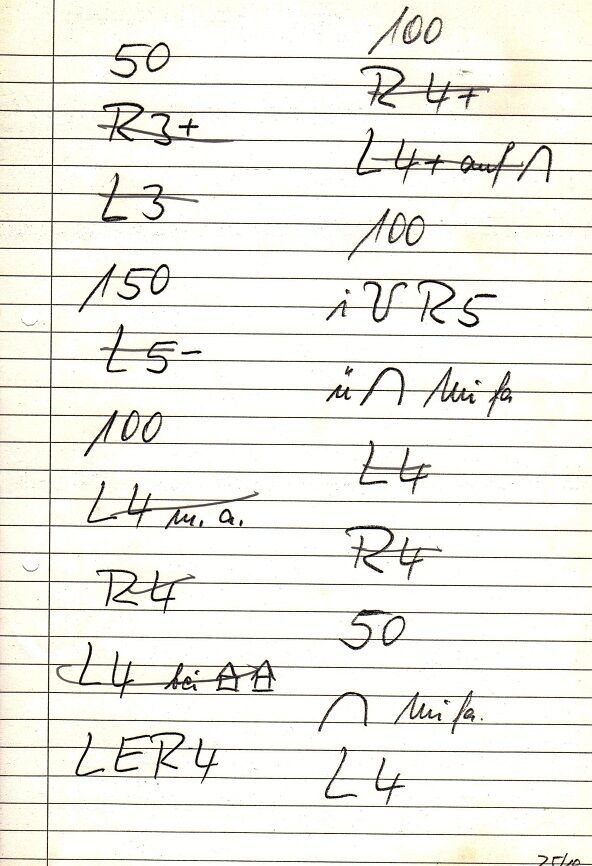 50
R3+
L3
150
L5-
100
L4 m. a.
R4
L4 bei
LER4
100
R4+
L4+ auf ∩
100
i R5
ü ∩ Mi fa
L4
R4
50
∩ Mi fa.
L4